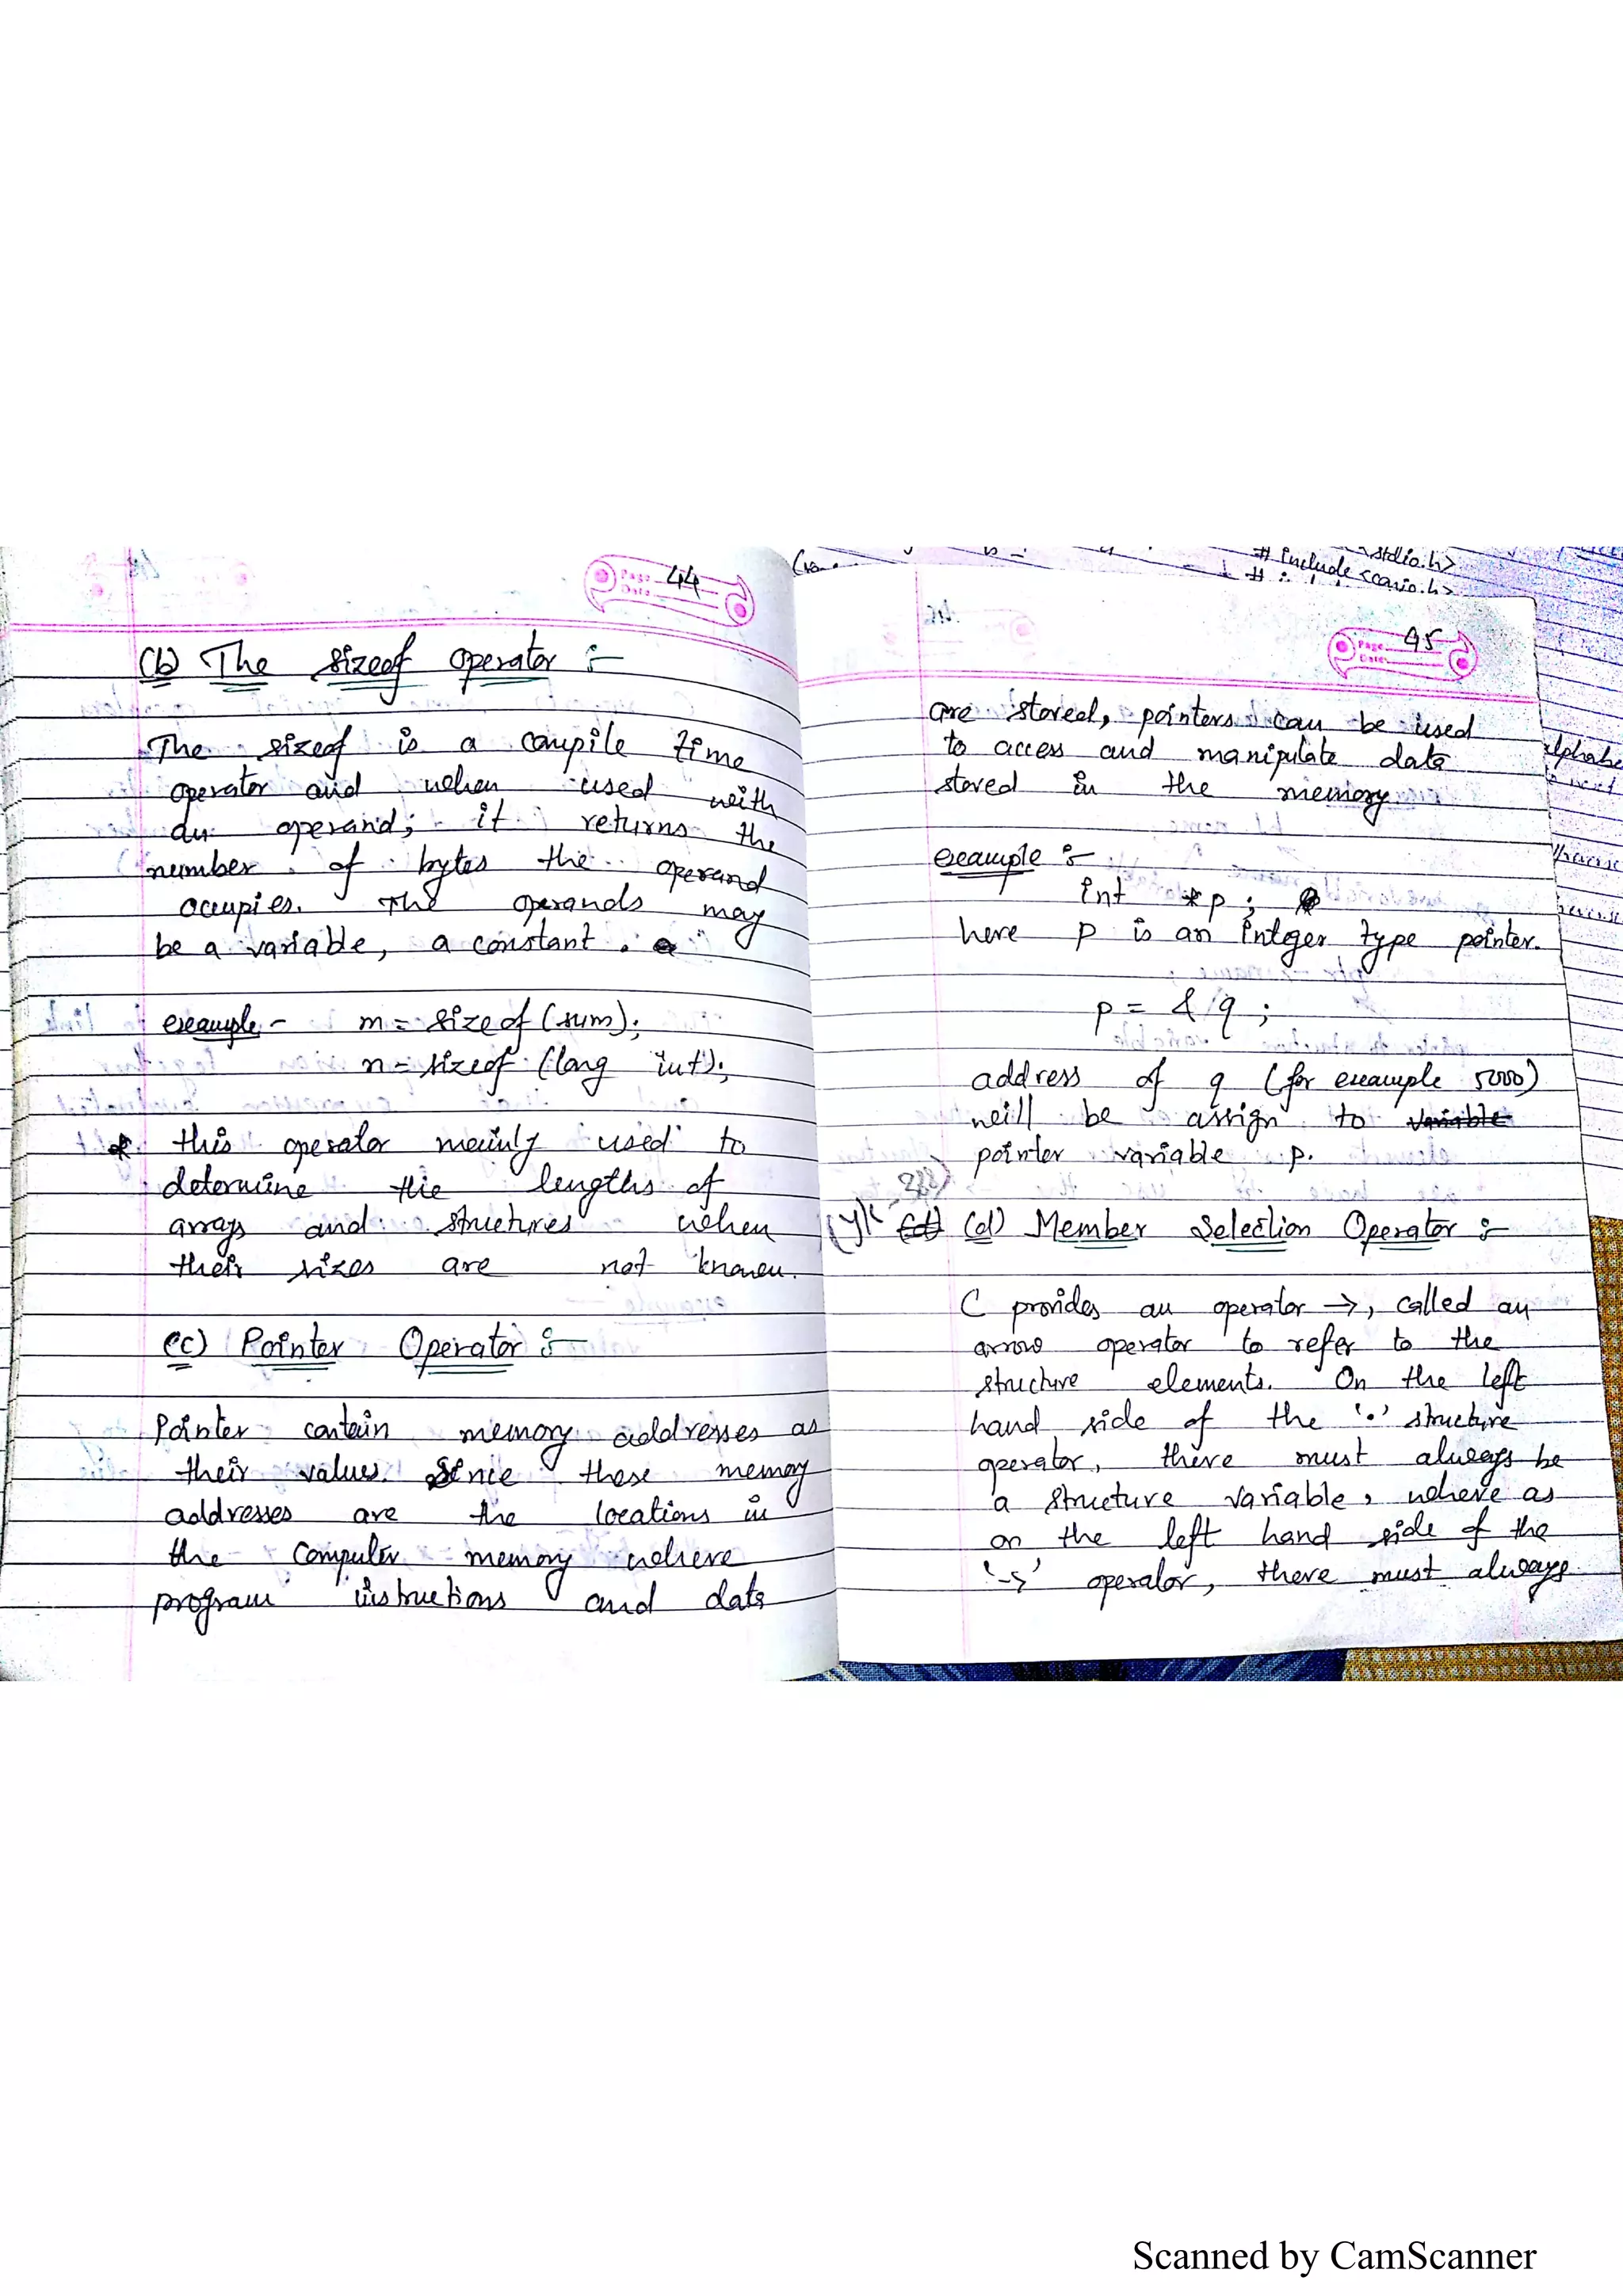 Page 44
Date
(b) The sizeof operator :-
The sizeof is a compile time
operator and when used with
an operand, it returns the
number of bytes the operand
occupies. The operands may
be a variable, a constant.
example - m = sizeof (sum);
n = sizeof (long int);
* this operator mainly used to
determine the lengths of
arrays and structures when
their sizes are not known.
(c) Pointer Operator :-
Pointer contain memory addresses as
their values. Since these memory
addresses are the locations in
the computer memory where
program instructions and data
# include <conio.h>
stdio.h>
Page 45
Date
are stored, pointers can be used
to access and manipulate data
stored in the memory.
example :-
int *p ;
here p is an integer type pointer.
p = & q ;
address of q (for example 5000)
will be assign to variable
pointer variable p.
(d) (d) Member Selection Operator :-
C provides an operator →, called an
arrow operator to refer to the
structure elements. On the left
hand side of the '.' structure
operator, there must always be
a structure variable, where as
on the left hand side of the
'->' operator, there must always
Scanned by CamScanner